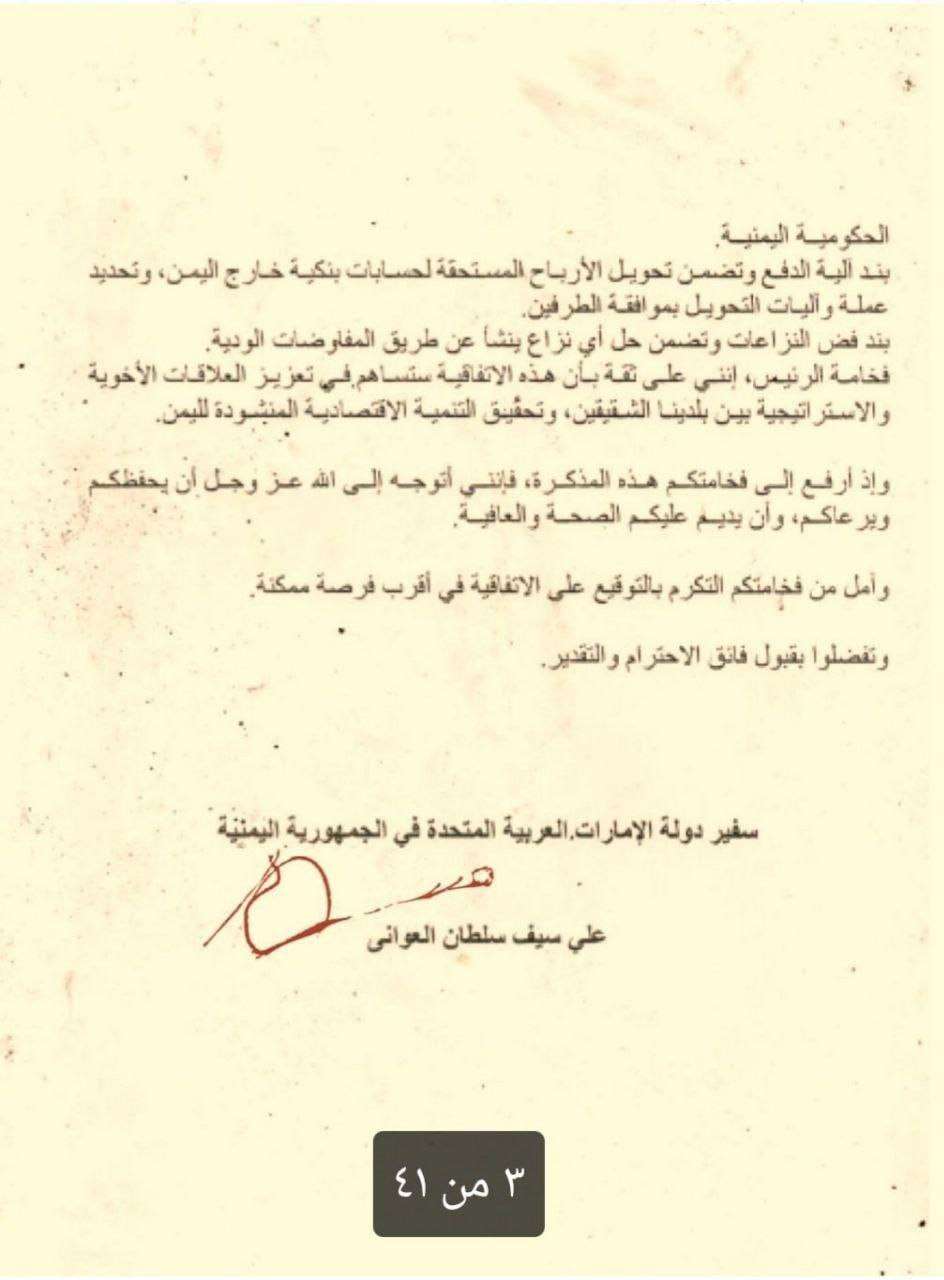 الحكومية اليمنية.
بند آلية الدفع وتضمن تحويل الأرباح المستحقة لحسابات بنكية خارج اليمن، وتحديد
عملة وآليات التحويل بموافقة الطرفين.
بند فض النزاعات وتضمن حل أي نزاع ينشأ عن طريق المفاوضات الودية.
فخامة الرئيس، إنني على ثقة بأن هذه الاتفاقية ستساهم في تعزيز العلاقات الأخوية
والاستراتيجية بين بلدينا الشقيقين، وتحقيق التنمية الاقتصادية المنشودة لليمن.
وإذ أرفع إلى فخامتكم هذه المذكرة، فإنني أتوجه إلى الله عز وجل أن يحفظكم
ويرعاكم، وأن يديم عليكم الصحة والعافية.
وآمل من فخامتكم التكرم بالتوقيع على الاتفاقية في أقرب فرصة ممكنة.
وتفضلوا بقبول فائق الاحترام والتقدير.
سفير دولة الإمارات.العربية المتحدة في الجمهورية اليمنية
علي سيف سلطان العوانى
٣ من ٤١